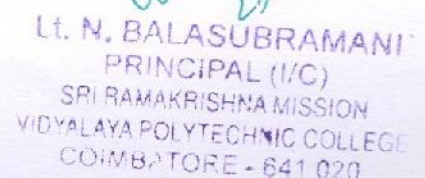 Lt. N. BALASUBRAMANI
PRINCIPAL (I/C)
SRI RAMAKRISHNA MISSION
VIDYALAYA POLYTECHNIC COLLEGE
COIMBATORE - 641 020